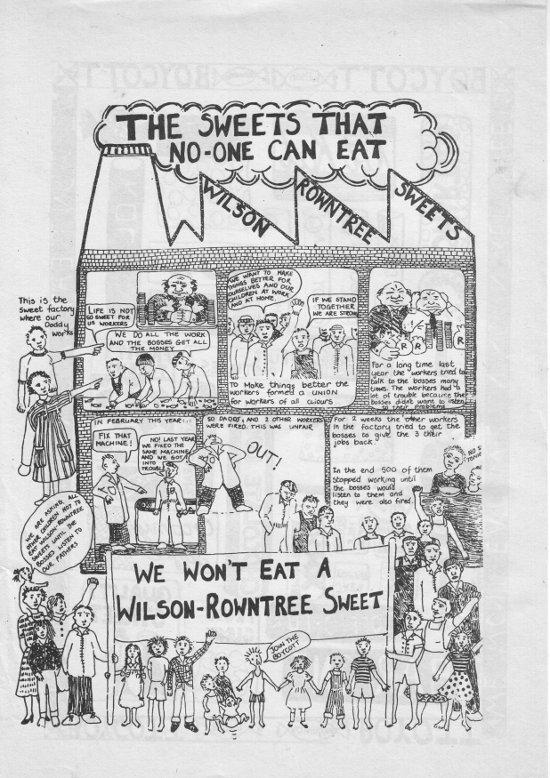 THE SWEETS THAT
NO-ONE CAN EAT
WILSON
ROWNTREE
SWEETS
This is the
sweet factory
where our
Daddy
works
LIFE IS NOT
SO SWEET FOR
US WORKERS
WE DO ALL THE WORK
AND THE BOSSES GET ALL
THE MONEY
WE WANT TO MAKE
THINGS BETTER FOR
OURSELVES AND OUR
CHILDREN AT WORK
AND AT HOME.
IF WE STAND
TOGETHER
WE ARE STRONG
To Make things better the
workers formed a UNION
for workers of all colours
R
R
For a long time last
year the workers tried to
talk to the bosses many
times. The workers had
lot of trouble because the
bosses didn't want to listen
IN FEBRUARY THIS YEAR
FIX THAT
MACHINE!
NO! LAST YEAR
WE FIXED THE
SAME MACHINE
AND WE GOT
INTO
TROUBLE
SO DADDY, AND 2 OTHER WORKERS
WERE FIRED. THIS WAS UNFAIR
OUT!
For 2 weeks the other workers
in the factory tried to get the
bosses to give the 3 their
jobs back.
In the end 500 of them
stopped working until
the bosses would
listen to them and
they were also fired
WE ARE ASKING ALL
OUR CHILDREN NOT TO
EAT WILSON-ROWNTREE
SWEETS UNTIL THE
BOSSES LISTEN TO
OUR FATHERS
WE WON'T EAT A
WILSON-ROWNTREE SWEET
JOIN THE
BOYCOTT
BOYCOTT
BOYCOTT